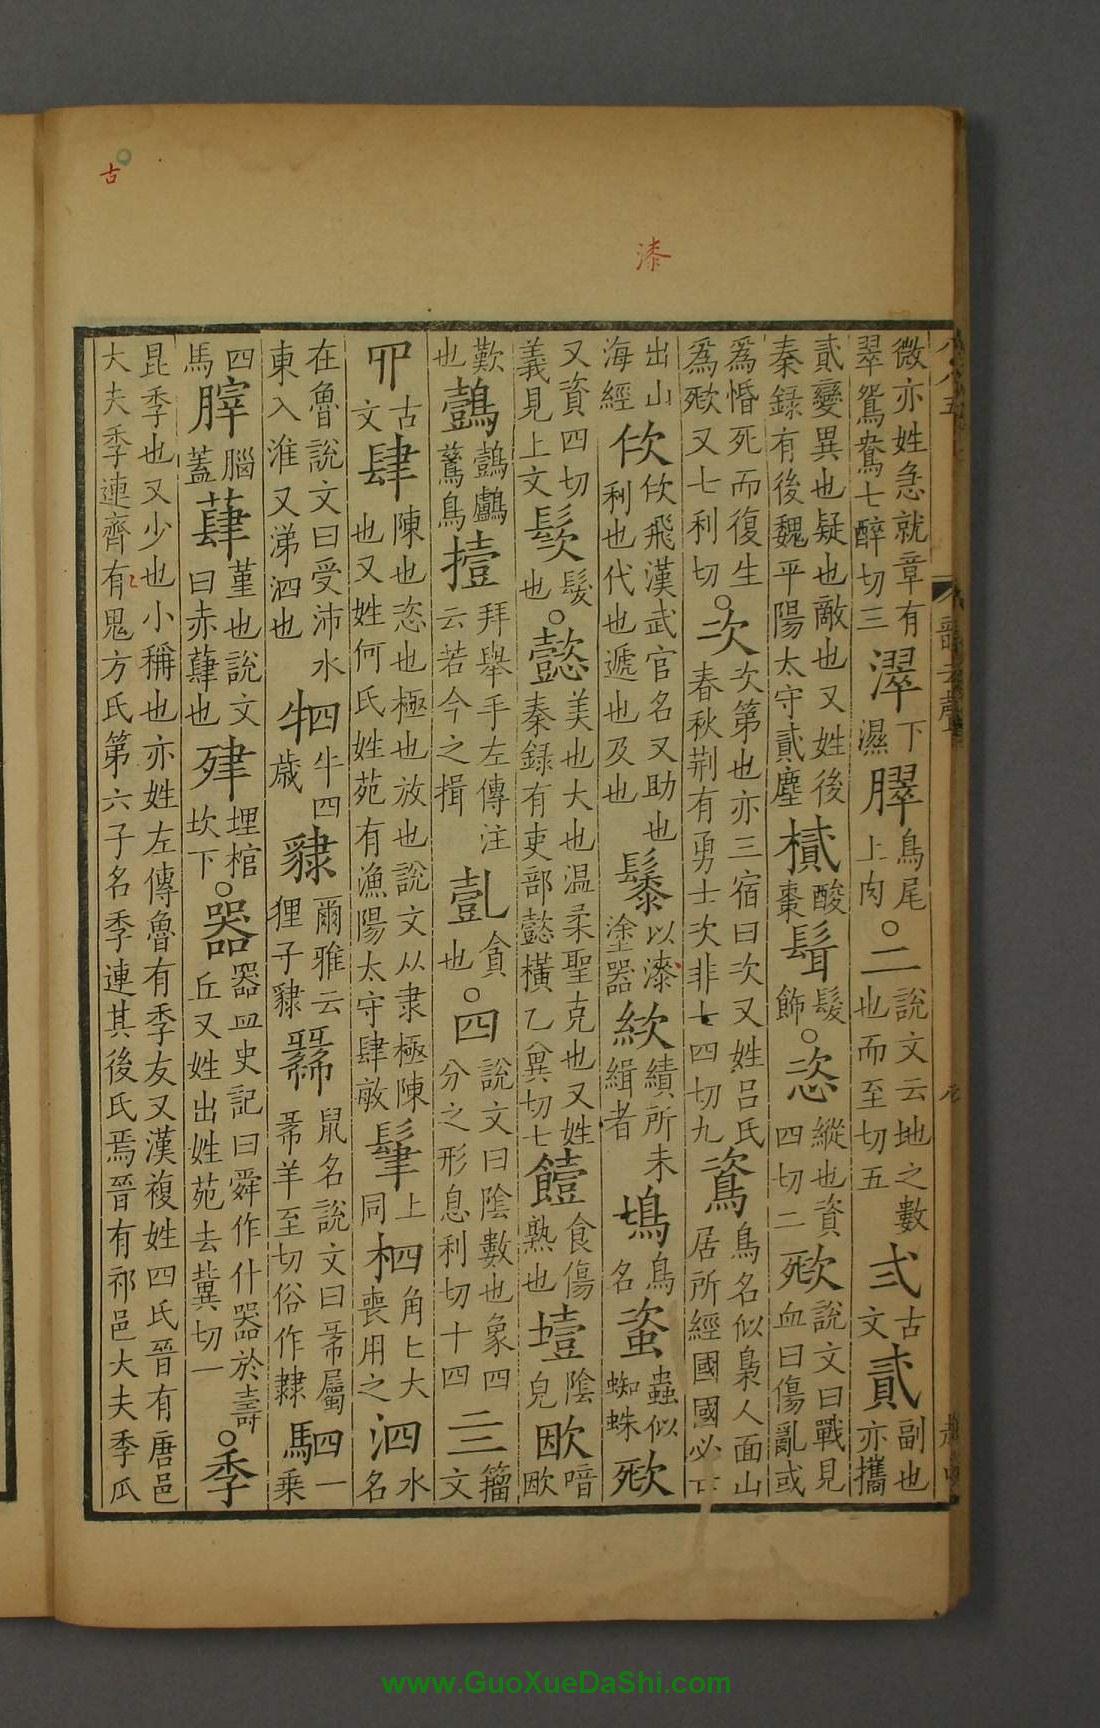 古
漆
微亦姓急就章有翠鴛鴦七醉切三濢下濕膵鳥尾上肉○二說文云地之數也而至切五弍古文貳副也亦攜
貳變異也疑也敵也又姓後秦錄有後魏平陽太守貳塵樲酸棗髶髮飾○恣縱也資四切二㱞說文曰戰見血曰傷亂或
爲惛死而復生爲㱞又七利切○次次第也亦三宿曰次又姓呂氏春秋荆有勇士次非七四切九鴜鳥名似梟人面山居所經國國必亡
出山海經佽佽飛漢武官名又助也利也代也遞也及也髤以漆塗器絘績所未緝者䳐鳥名蛓蟲似蜘蛛㱞
又資四切義見上文髮髮也○懿美也大也温柔聖克也又姓秦錄有吏部懿橫乙兾切七饐食傷熟也㙪陰皃㰳喑㰳
歎也鷧鷧鸕鷔鳥撎拜舉手左傳注云若今之揖亄貪也○四說文曰陰數也象四分之形息利切十四亖籀文
𦉭古文肆陳也恣也極也放也說文从隶極陳也又姓何氏姓苑有漁陽太守肆敏肂上同柶角匕大喪用之泗水名
在魯說文曰受沛水東入淮又涕泗也牭牛四歲貄爾雅云狸子貄䰜鼠名說文曰㣇屬㣇羊至切俗作隸駟一乘
四馬䐉腦蓋蕼蓳也說文曰赤蕼也殔埋棺坎下○器器皿史記曰舜作什器於壽丘又姓出姓苑去冀切一○季
昆季也又少也小稱也亦姓左傳魯有季友又漢複姓四氏晉有唐邑大夫季連齊有鬼方氏第六子名季連其後氏焉晉有祁邑大夫季瓜
www.GuoXueDaShi.com